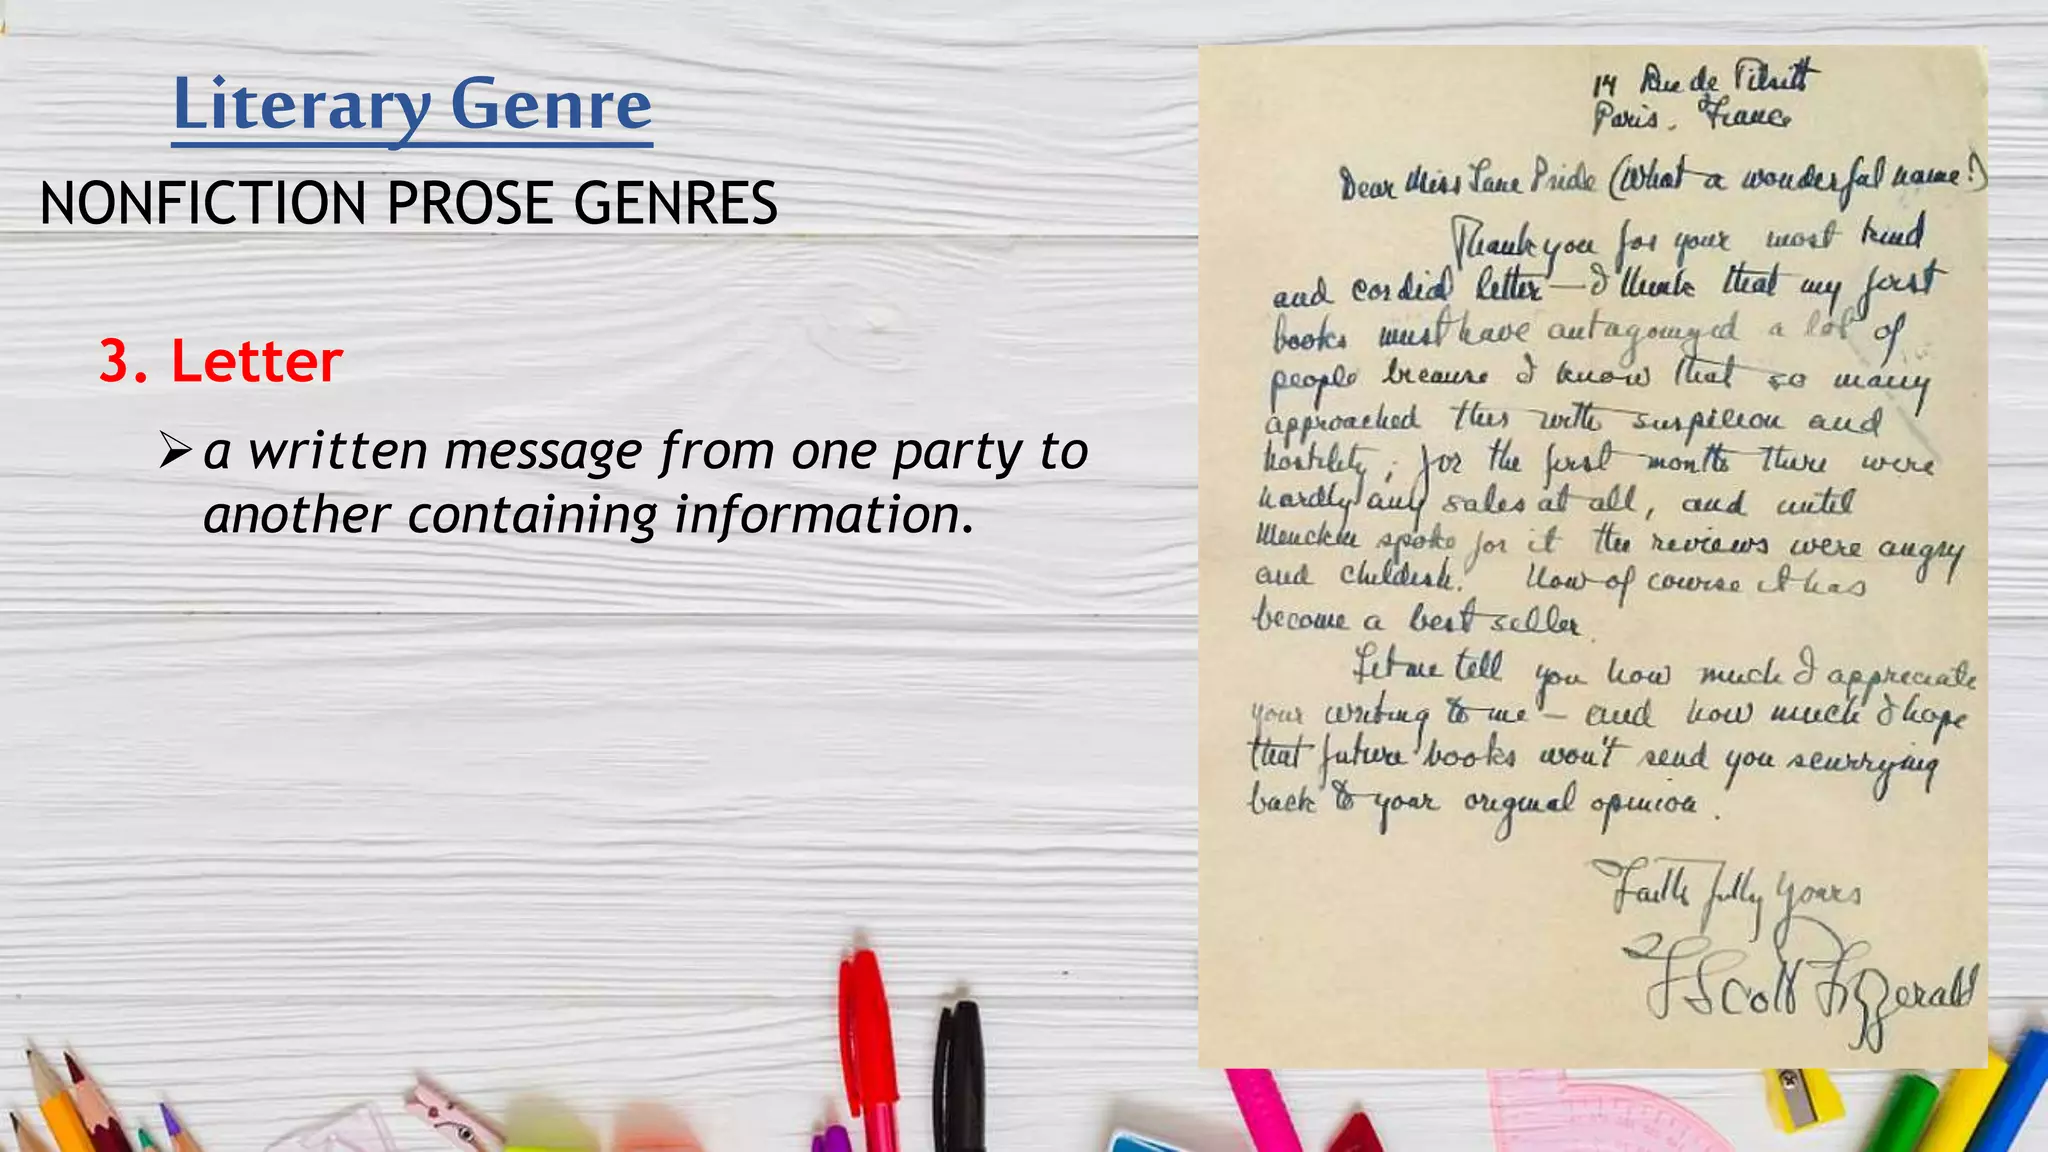 Literary Genre
NONFICTION PROSE GENRES
3. Letter
➢ a written message from one party to
another containing information.
14 Rue de Tilsitt
Paris, France
Dear Miss Jane Pride (What a wonderful name!)
Thank you for your most kind
and cordial letter—I think that my first
books must have antagonized a lot of
people because I know that so many
approached this with suspicion and
hostility; for the first months there were
hardly any sales at all, and until
Mencken spoke for it the reviews were angry
and childish. Now of course it has
become a best seller.
Let me tell you how much I appreciate
your writing to me — and how much I hope
that future books won't send you scurrying
back to your original opinion.
Faithfully Yours
F Scott Fitzgerald